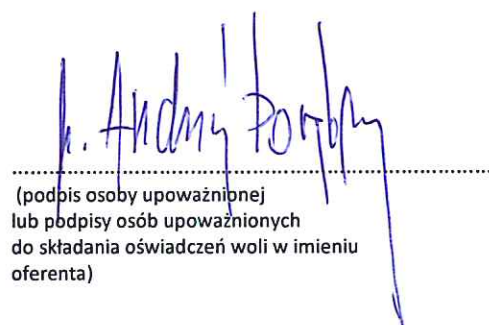 Andrzej
(podpis osoby upoważnionej
lub podpisy osób upoważnionych
do składania oświadczeń woli w imieniu
oferenta)